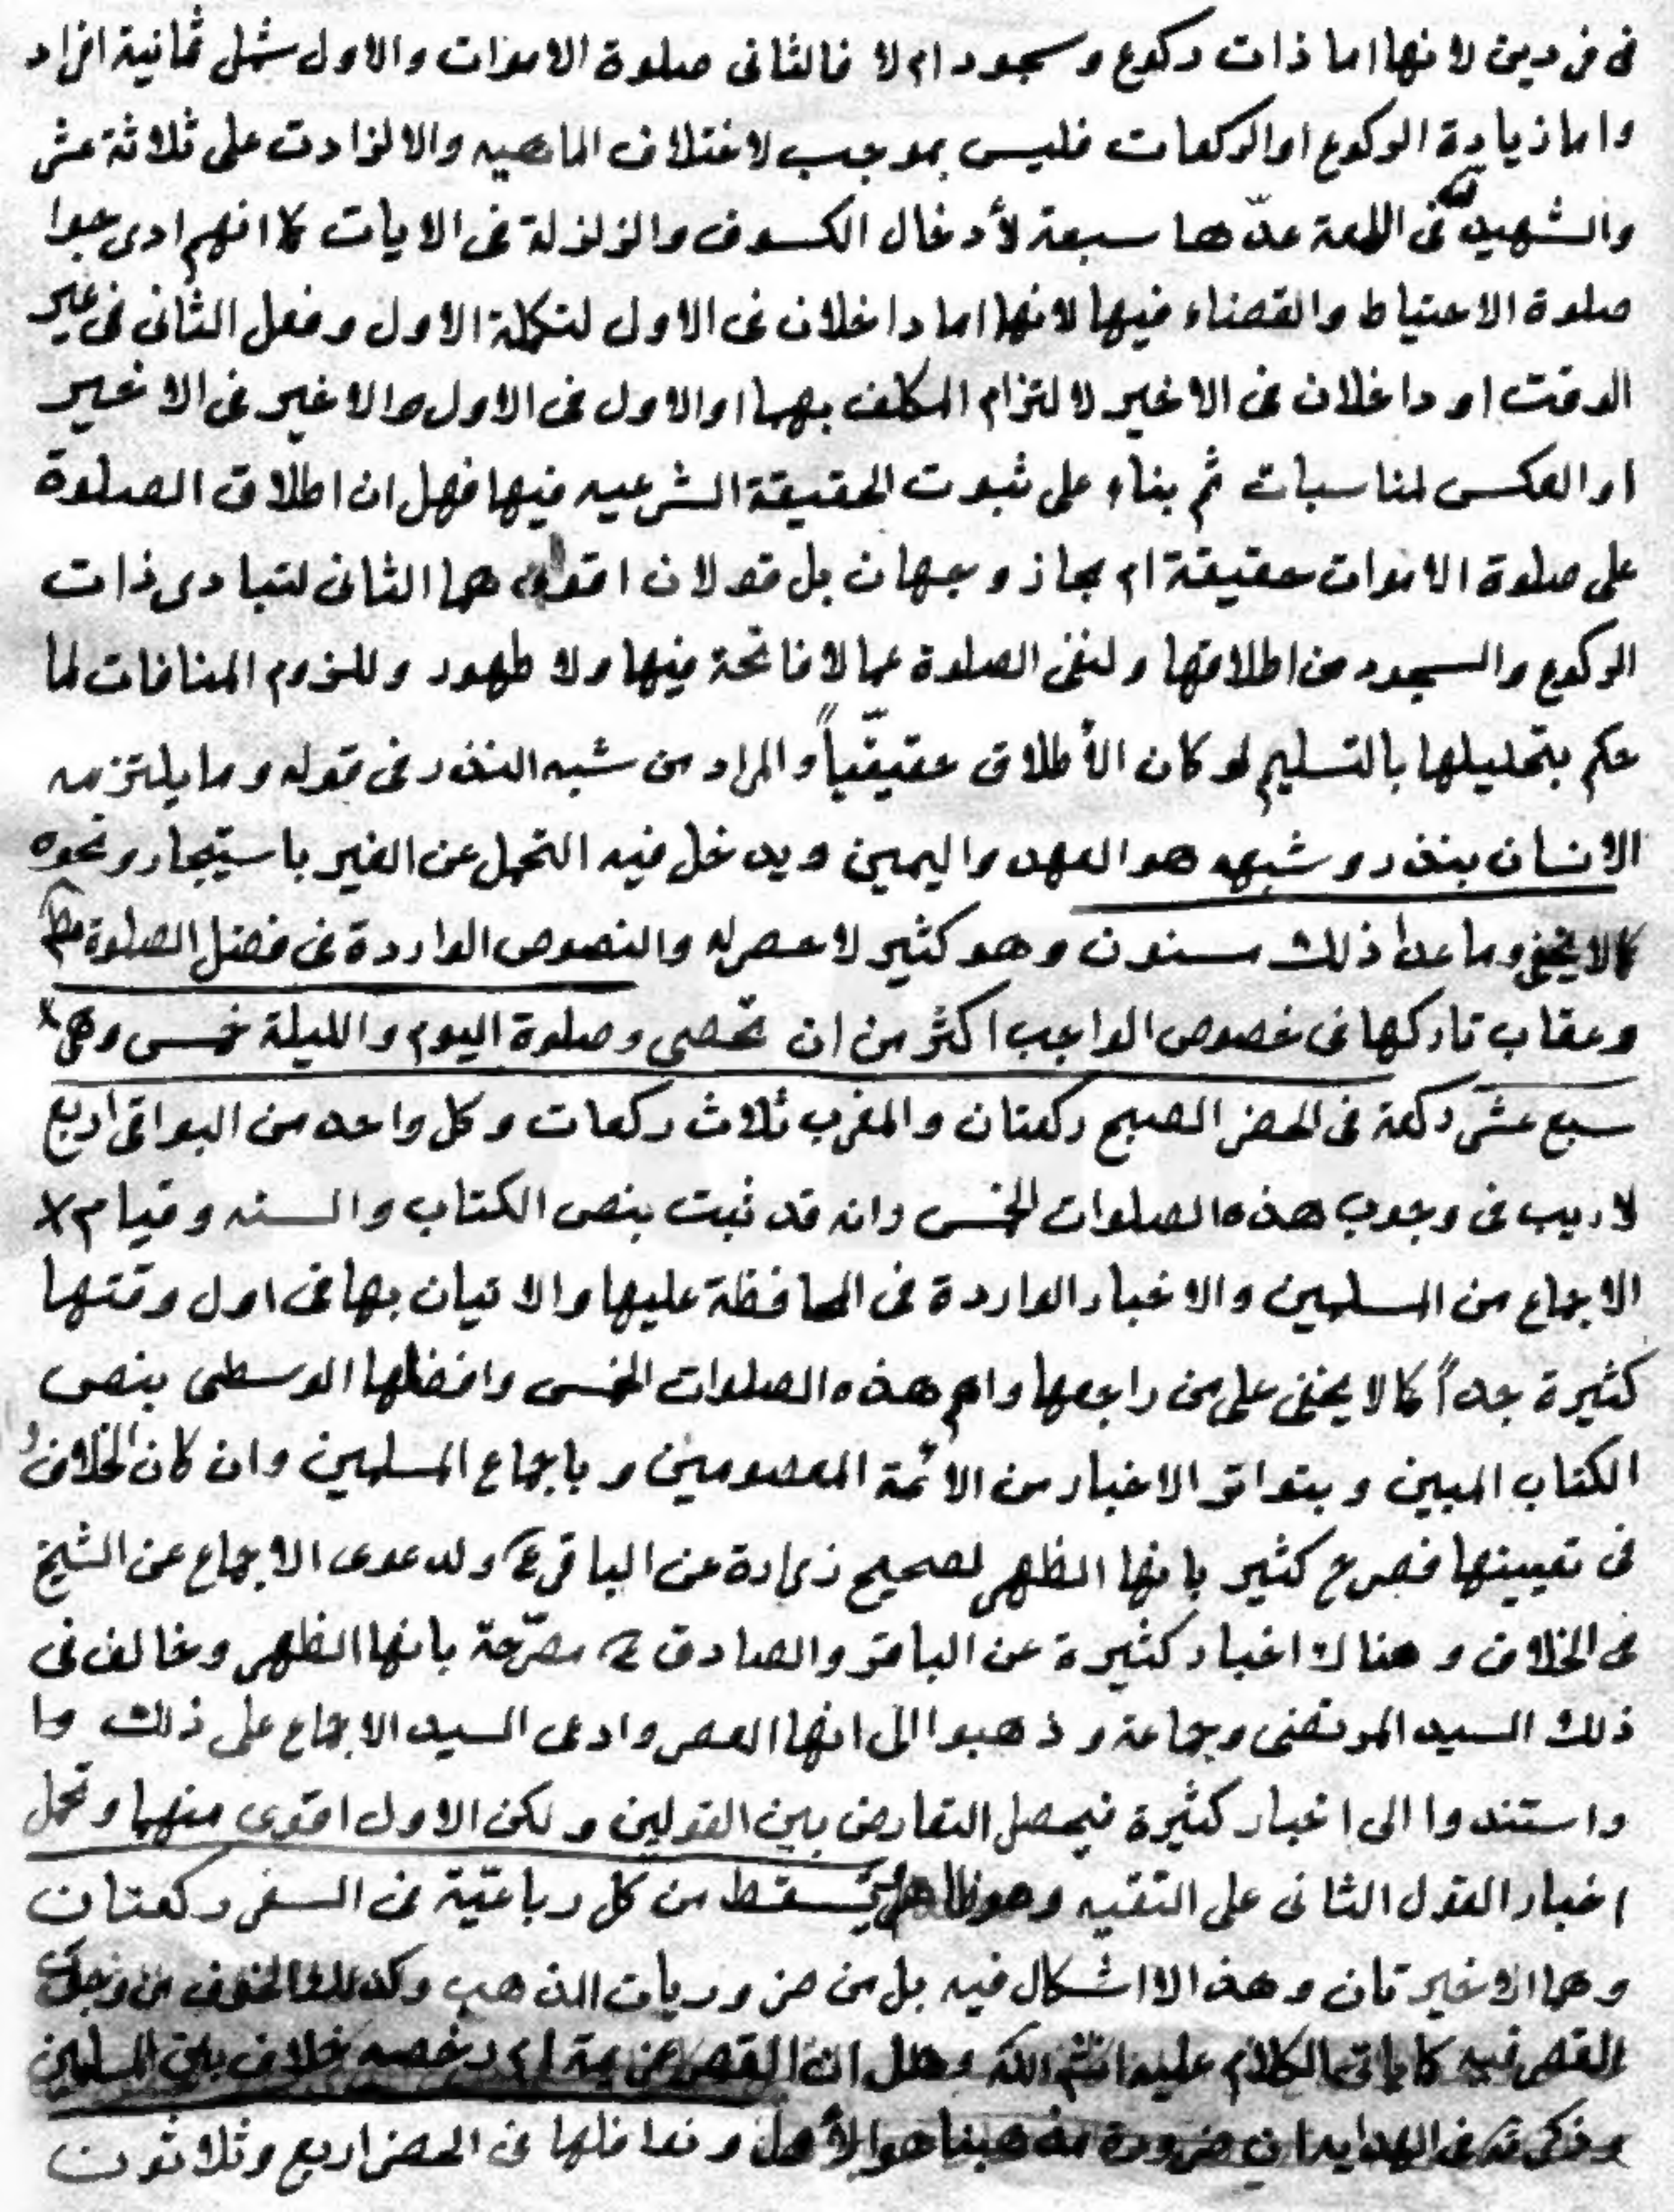 فى فردين لانها اما ذات ركوع و سجود ام لا فالثانى صلوة الاموات والاول شمل ثمانية افراد
واما زيادة الركوع او الركعات فليس بموجب لاختلاف الماهيه والا لزادت على ثلاثة عشر
والشهيد فى اللمعة عدّها سبعة لأدخال الكسوف والزلزلة فى الايات كما انهم ادرجوا
صلوة الاحتياط والقضاء فيها لانها اما داخلان فى الاول لتكملة الاول وفعل الثانى فى غير
الوقت او داخلان فى الاخير لالتزام المكلف بهما او الاول فى الاول والاخير فى الاخير
او العكس لمناسبات ثم بناء على ثبوت الحقيقة الشرعيه فيها فهل ان اطلاق الصلوة
على صلوة الاموات حقيقة ام مجاز وجهان بل قولان اقواهما الثانى لتبادر ذات
الركوع والسجود من اطلاقها ولنفى الصلوة عما لا فاتحة فيها ولا طهور وللزوم المنافات لما
حكم بتحليلها بالتسليم لو كان الأطلاق حقيقيّاً والمراد من شبه النذر فى قوله وما يلتزمه
الانسان بنذر و شبهه هو العهد واليمين ويدخل فيه التحمل عن الغير باستيجار ونحوه
كما لا يخفى وما عدا ذلك مسنون وهو كثير لا حصر له والنصوص الواردة فى فضل الصلوة مط
وعقاب تاركها فى خصوص الواجب اكثر من ان تحصى وصلوة اليوم والليلة خمس وهى
سبع عشر ركعة فى الحضر الصبح ركعتان والمغرب ثلاث ركعات وكل واحد من البواقى اربع
لا ريب فى وجوب هذه الصلوات الخمس وانه قد ثبت بنص الكتاب والسنه وقيام
الاجماع من المسلمين والاخبار الواردة فى المحافظة عليها والاتيان بها فى اول وقتها
كثيرة جداً كما لا يخفى على من راجعها واهم هذه الصلوات الخمس وافضلها الوسطى بنص
الكتاب المبين و بتواتر الاخبار من الائمة المعصومين و باجماع المسلمين وان كان الخلاف
فى تعيينها فصرح كثير بانها الظهر لصحيح زرارة عن الباقر ع ولدعوى الاجماع عن الشيخ
فى الخلاف و هناك اخبار كثيرة عن الباقر والصادق ع مصرّحة بانها الظهر وخالف فى
ذلك السيد المرتضى وجماعة و ذهبوا الى انها العصر وادعى السيد الاجماع على ذلك وا
واستندوا الى اخبار كثيرة فيحصل التعارض بين القولين و لكن الاول اقوى منهما وتحمل
اخبار القول الثانى على التقيه وهو يسقط من كل رباعيّة فى السفر ركعتان
وهما الاخيرتان وهذا لا اشكال فيه بل من ضروريات المذهب وكذلك الخوف
القصر فيه كما ياتى الكلام عليه انشم الله وهل ان القصر عزيمة ام رخصه خلاف بين المسلمين
وذكر فى الهدايه ان ضرورة مذهبنا هو الأول ونوافلها فى الحضر اربع وثلاثون